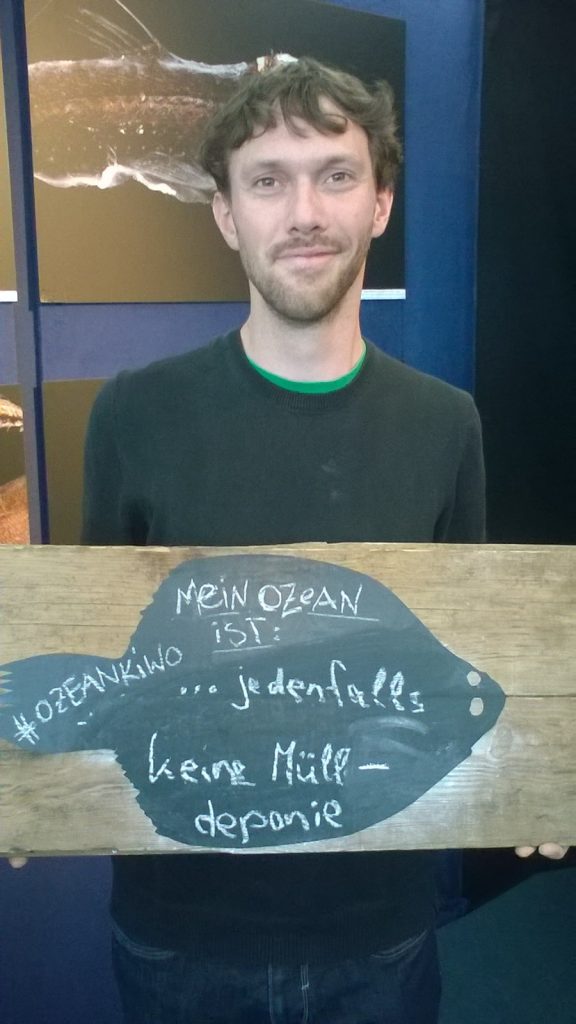 MEIN OZEAN
IST:
#OZEANKIWO
... jedenfalls
keine Müll-
deponie